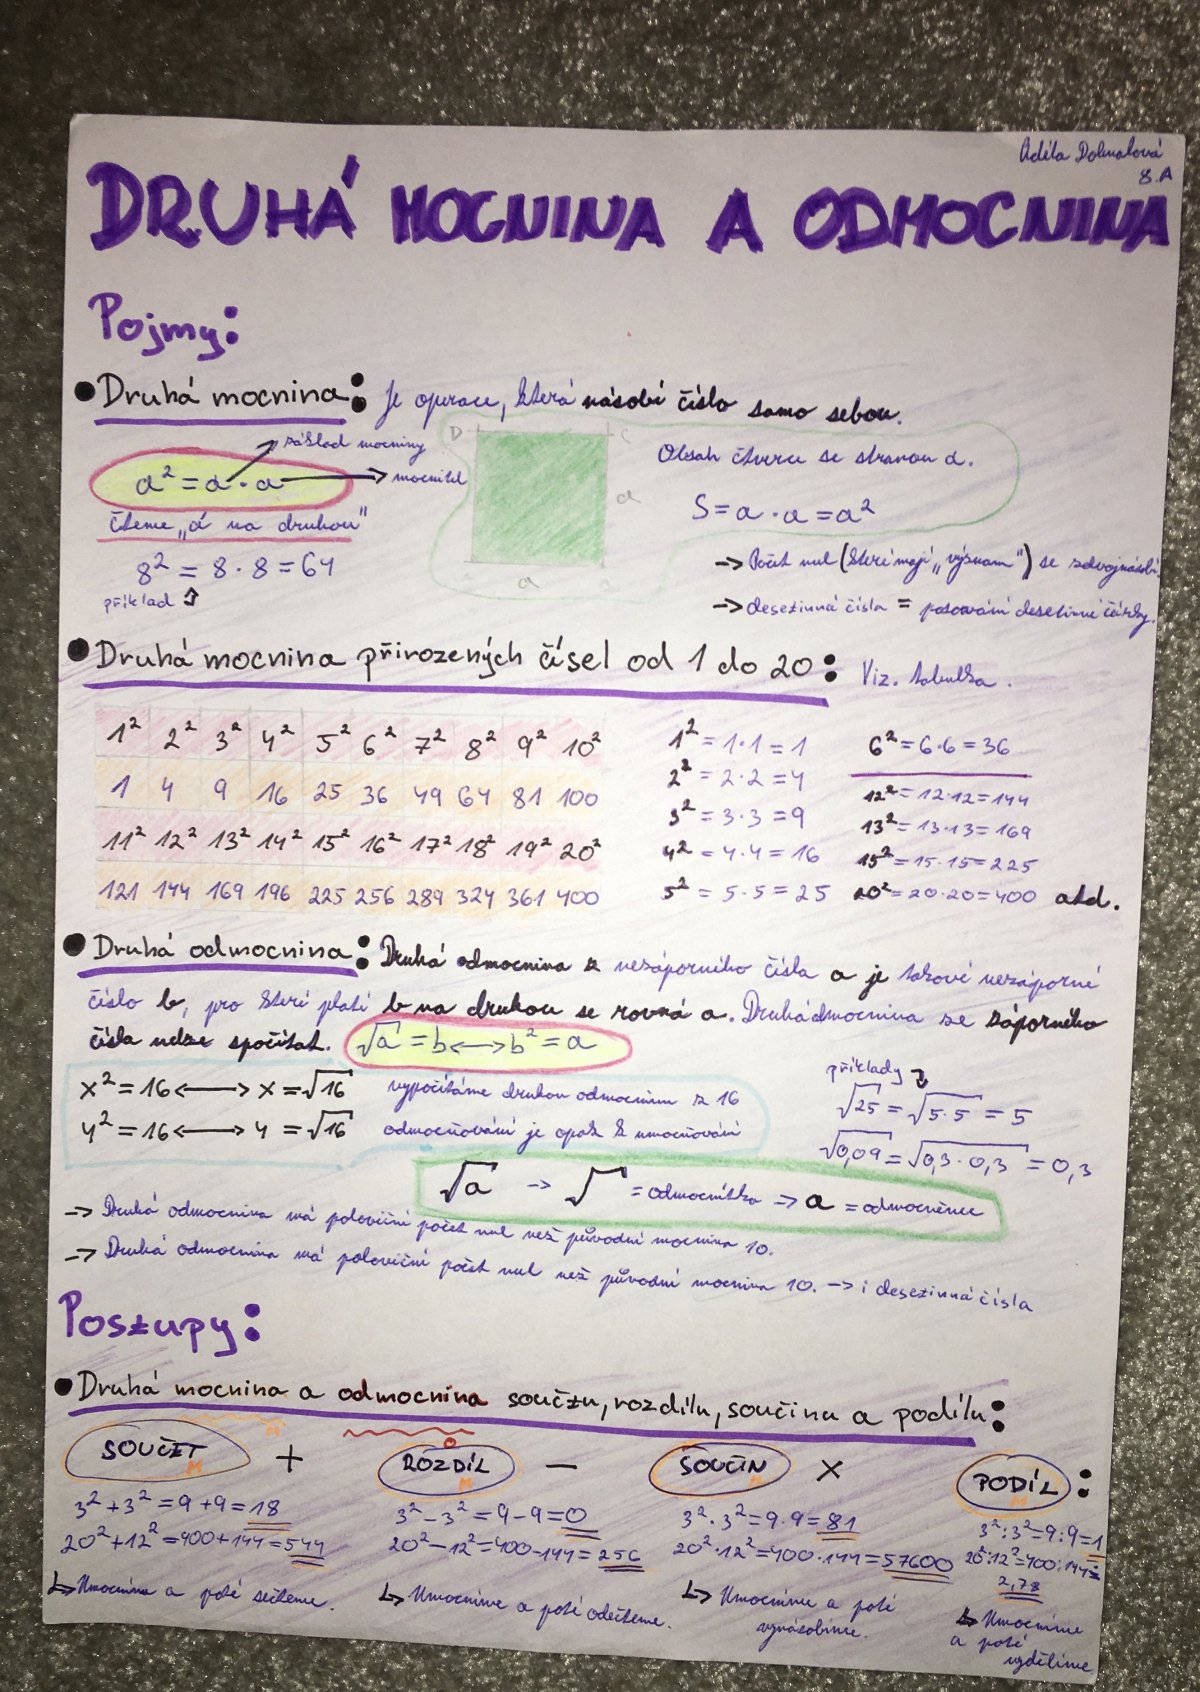 Adéla Dohnalová
8.A
DRUHÁ MOCNINA A ODMOCNINA
Pojmy:
• Druhá mocnina: Je operace, která násobí číslo samo sebou.
základ mocniny
a² = a · a
mocnitel
čteme „a na druhou"
8² = 8 · 8 = 64
příklad
D C
a
a
Obsah čtverce se stranou a.
S = a · a = a²
→ Počet nul (které mají „význam") se zdvojnásobí.
→ desetinná čísla = posouvání desetinné čárky.
• Druhá mocnina přirozených čísel od 1 do 20: Viz. tabulka.
1² 2² 3² 4² 5² 6² 7² 8² 9² 10²
1 4 9 16 25 36 49 64 81 100
11² 12² 13² 14² 15² 16² 17² 18² 19² 20²
121 144 169 196 225 256 289 324 361 400
1² = 1·1 = 1
2² = 2·2 = 4
3² = 3·3 = 9
4² = 4·4 = 16
5² = 5·5 = 25
6² = 6·6 = 36
12² = 12·12 = 144
13² = 13·13 = 169
15² = 15·15 = 225
20² = 20·20 = 400 atd.
• Druhá odmocnina: Druhá odmocnina z nezáporného čísla a je takové nezáporné
číslo b, pro které platí b na druhou se rovná a. Druhá odmocnina ze záporného
čísla nelze spočítat. √a = b ⟷ b² = a
x² = 16 ⟷ x = √16 vypočítáme druhou odmocninu z 16
4² = 16 ⟷ 4 = √16 odmocňování je opak k umocňování
příklady
√25 = √5·5 = 5
√0,09 = √0,3·0,3 = 0,3
√a → √ = odmocnítko → a = odmocněnec
→ Druhá odmocnina má poloviční počet nul než původní mocnina 10.
→ Druhá odmocnina má poloviční počet nul než původní mocnina 10. → i desetinná čísla
Postupy:
• Druhá mocnina a odmocnina součtu, rozdílu, součinu a podílu:
M O
SOUČET +
M
3² + 3² = 9 + 9 = 18
20² + 12² = 400 + 144 = 544
↳ Umocníme a poté sečteme.
ROZDÍL −
M
3² − 3² = 9 − 9 = 0
20² − 12² = 400 − 144 = 256
↳ Umocníme a poté odečteme.
SOUČIN ×
M
3² · 3² = 9 · 9 = 81
20² · 12² = 400 · 144 = 57600
↳ Umocníme a poté
vynásobíme.
PODÍL :
M
3² : 3² = 9 : 9 = 1
20² : 12² = 400 : 144 =
2,78
↳ Umocníme
a poté
vydělíme